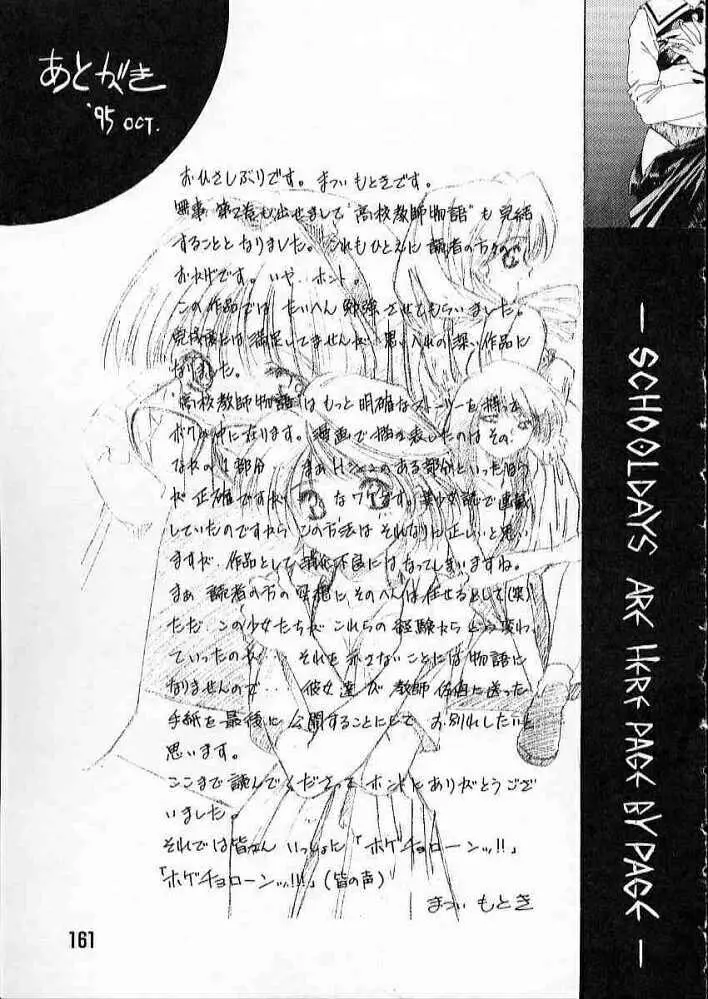 あとがき
'95 OCT.
おひさしぶりです。まつい もときです。
無事 第2巻も出せまして"高校教師物語"も完結
することとなりました。これもひとえに読者の方々の
おかげです。いや、ホント。
この作品では たいへん勉強させてもらいました。
完成度には満足してませんが 思い入れの深い作品に
なりました。
"高校教師物語"はもっと明確なストーリーを持って
ボクの中に在ります。漫画で描き表したのはその、
なかの1部分… まぁHシーンのある部分といった方
が 正確ですが なワケです。美少女誌で連載
していたのですから この方法は それなりに正しいと思い
ますが、作品として消化不良にはなってしまいますね。
まぁ 読者の方の 妄想に、そのへんは任せるとして(笑)
ただ、この少女たちが これらの経験から どう変わ
っていったのか… それを示さないことには 物語に
なりませんので… 彼女達が 教師 に送った
手紙を最後に 公開することにして お別れしたいと
思います。
ここまで 読んでくださって ホントにありがとうござ
いました。
それでは皆さん いっしょに「ホゲチョローンッ!!」
「ホゲチョローンッ!!!」(皆の声)
まつい もとき
161
— SCHOOLDAYS ARE HERE PAGE BY PAGE —